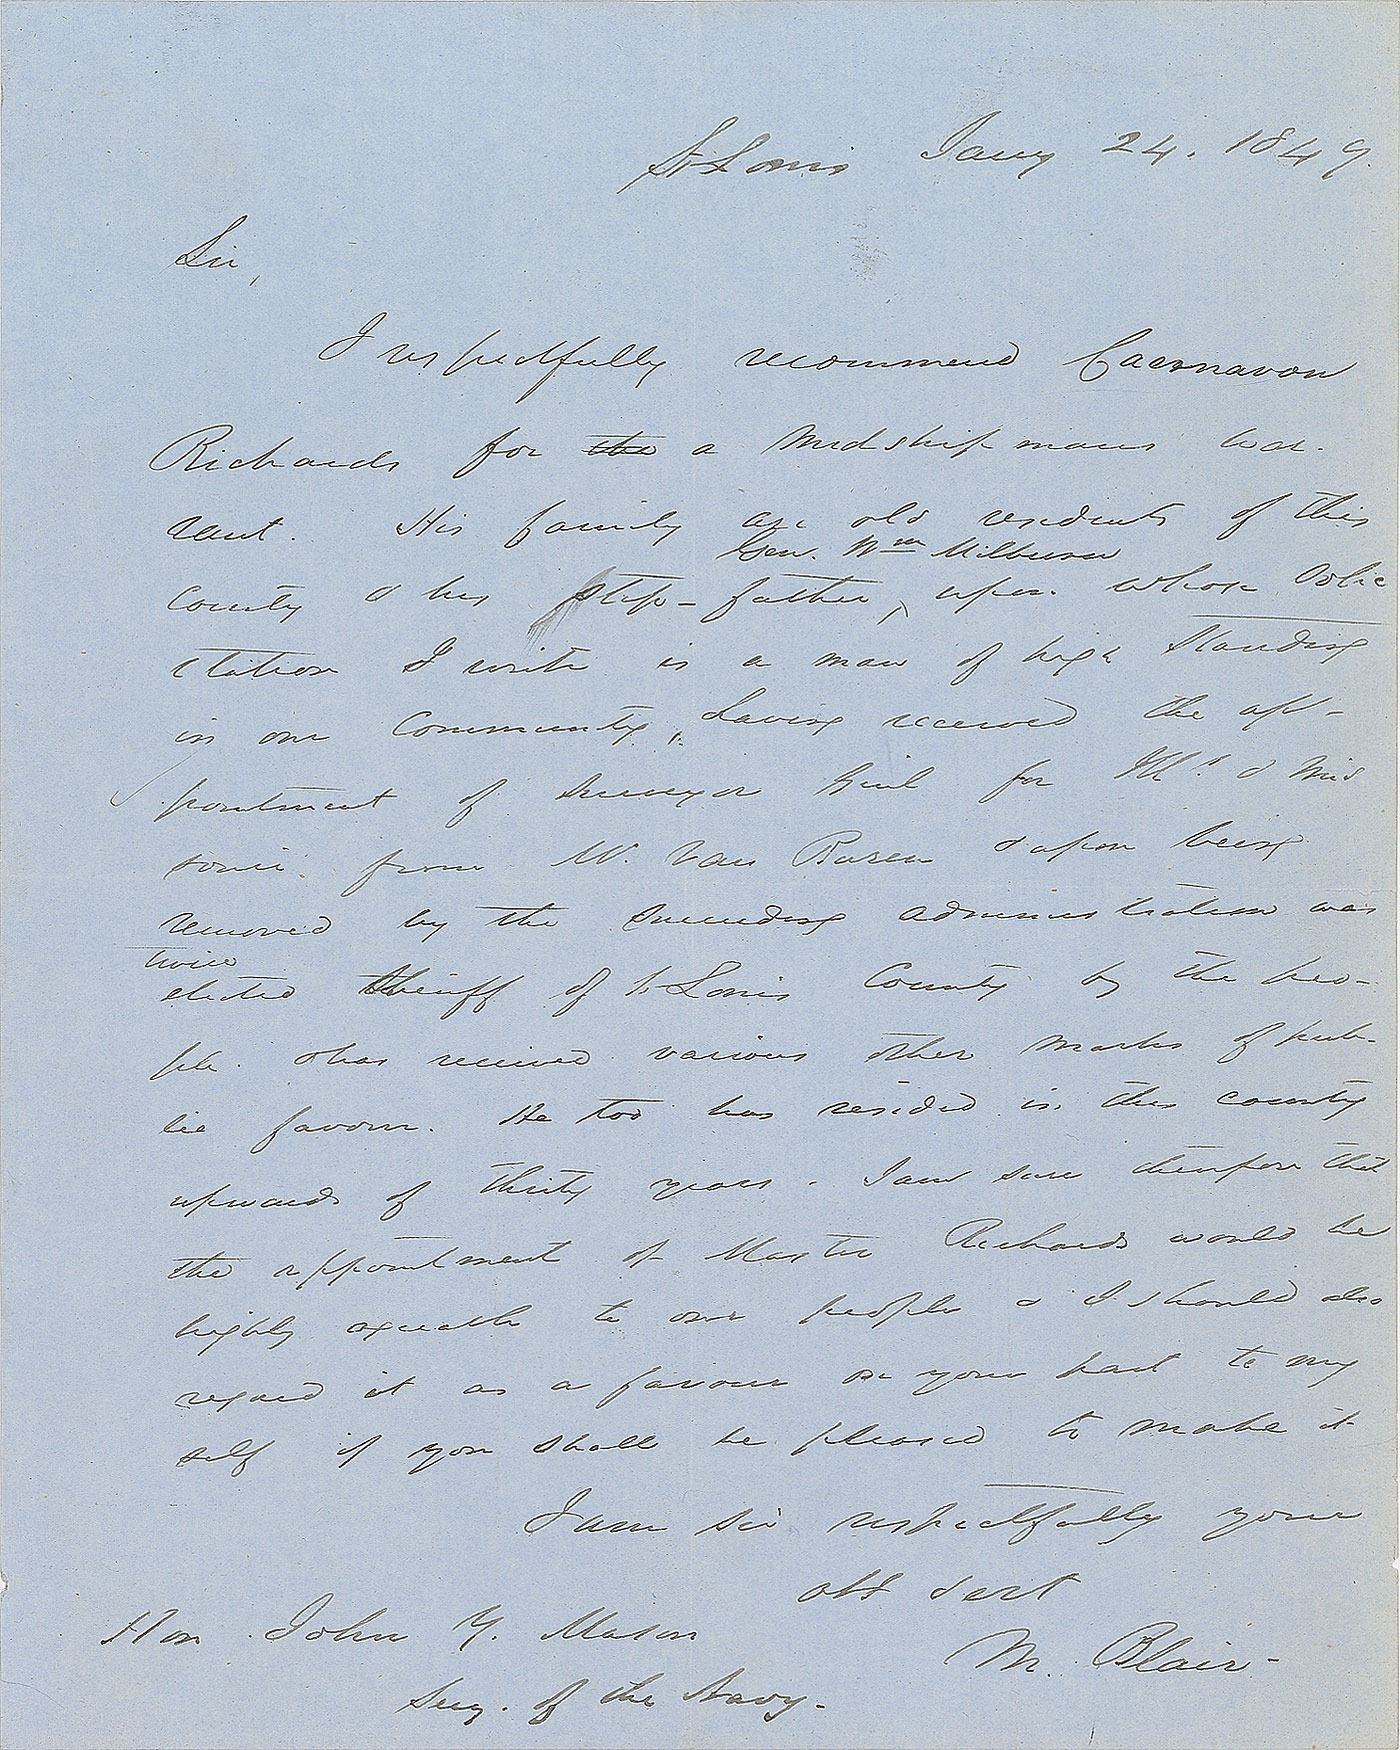 St Louis Jany 24. 1849.
Sir,
I respectfully recommend Caernavon
Richards for the a Midshipmans war-
rant. His family are old residents of this
Gen. Wm Milburn
county & his step-father, upon whose solic
itation I write is a man of high standing
in our community, having received the ap-
pointment of Surveyor Genl for Ills. & Mis
souri from Mr. Van Buren & upon being
removed by the succeeding administration was
twice
elected Sheriff of St Louis County by the peo-
ple. & has received various other marks of pub-
lic favour. He too has resided in this county
upwards of thirty years. I am sure therefore that
the appointment of Master Richards would be
highly agreeable to our people & I should also
regard it as a favour on your part to my
self if you shall be pleased to make it
I am sir respectfully your
obt servt
M. Blair-
Hon John Y. Mason
Secy. of the Navy-